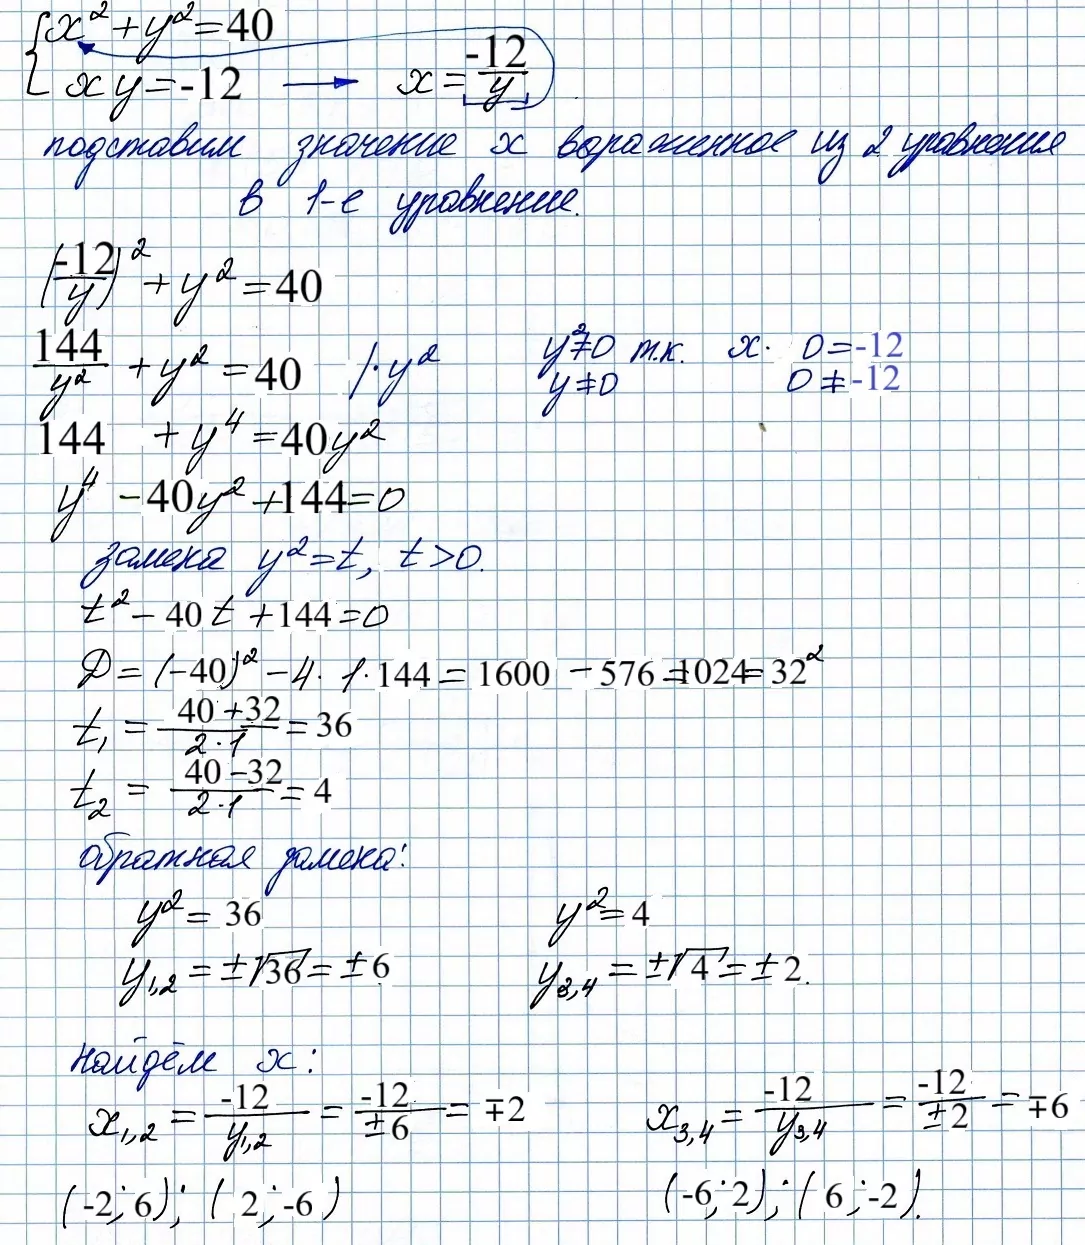 x² + y² = 40
xy = -12 → x = -12/y
подставим значение x выраженное из 2 уравнения
в 1-е уравнение.
(-12/y)² + y² = 40
144/y² + y² = 40 /·y² y²≠0 т.к. x· 0 = -12
y≠0 0 ≠ -12
144 + y⁴ = 40y²
y⁴ - 40y² + 144 = 0
замена y² = t, t > 0.
t² - 40t + 144 = 0
D = (-40)² - 4·1·144 = 1600 - 576 = 1024 = 32²
t₁ = (40+32)/(2·1) = 36
t₂ = (40-32)/(2·1) = 4
обратная замена:
y² = 36 y² = 4
y₁,₂ = ±√36 = ±6 y₃,₄ = ±√4 = ±2.
найдём x:
x₁,₂ = -12/y₁,₂ = -12/±6 = ∓2 x₃,₄ = -12/y₃,₄ = -12/±2 = ∓6
(-2; 6); (2; -6) (-6; 2); (6; -2).